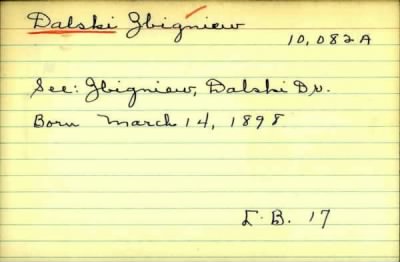 Dalski Zbigniew
10,082A
See: Zbigniew, Dalski Dr.
Born March 14, 1898
L. B. 17